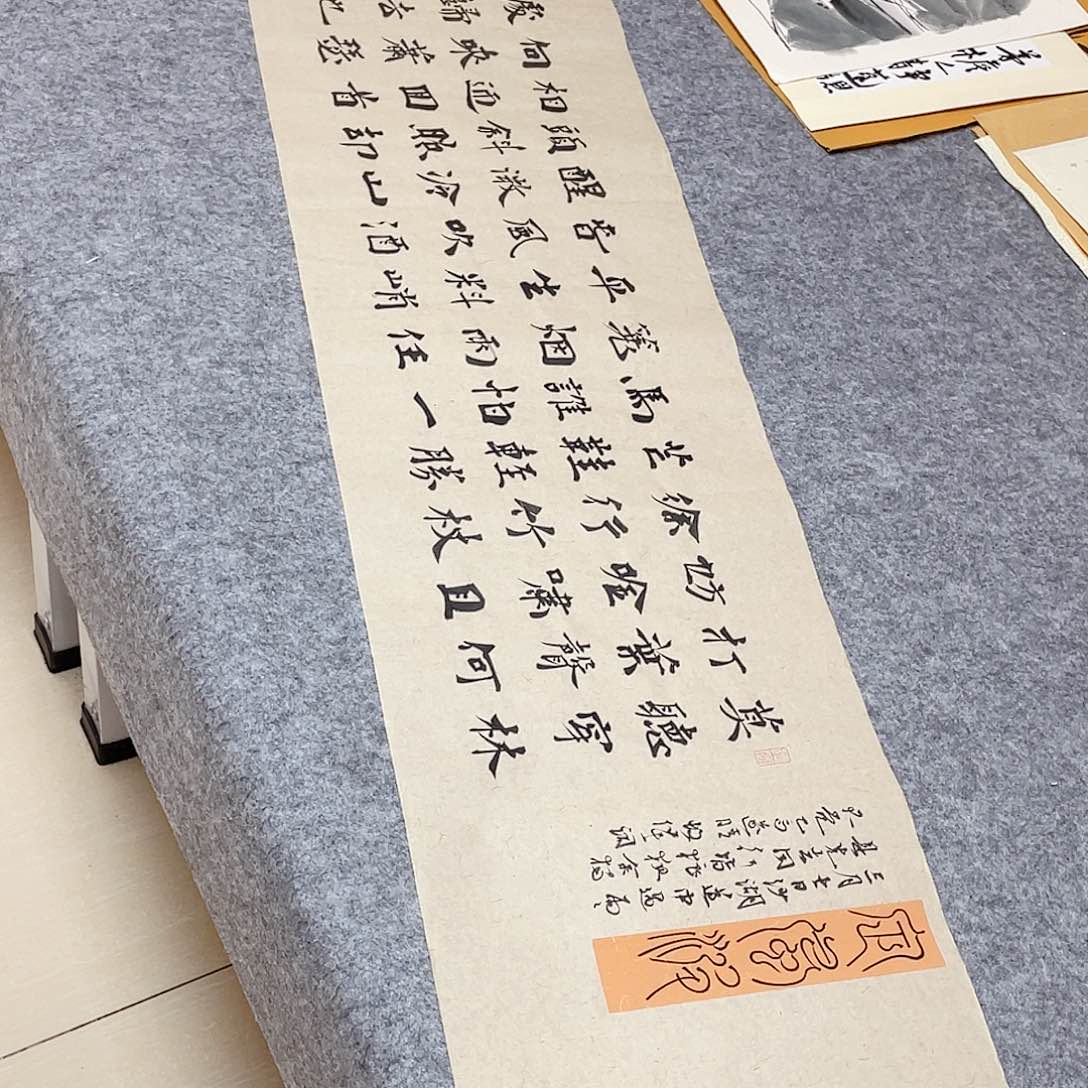 定風波
三月七日沙湖道中遇雨雨
具先去同行皆狼狽余獨
不覺已而遂晴故作此詞
莫聽穿林
打葉聲何
妨吟嘯且
徐行竹杖
芒鞋輕勝
馬誰怕一
蓑烟雨任
平生料峭
春風吹酒
醒微冷山
頭斜照却
相迎回首
向來蕭瑟
處歸去也